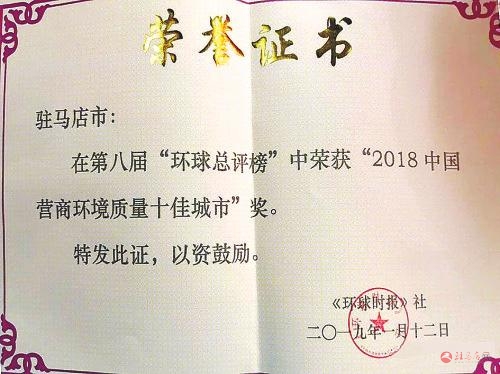 荣誉证书
驻马店市：
在第八届“环球总评榜”中荣获“2018中国
营商环境质量十佳城市”奖。
特发此证，以资鼓励。
《环球时报》社
二〇一九年一月十二日